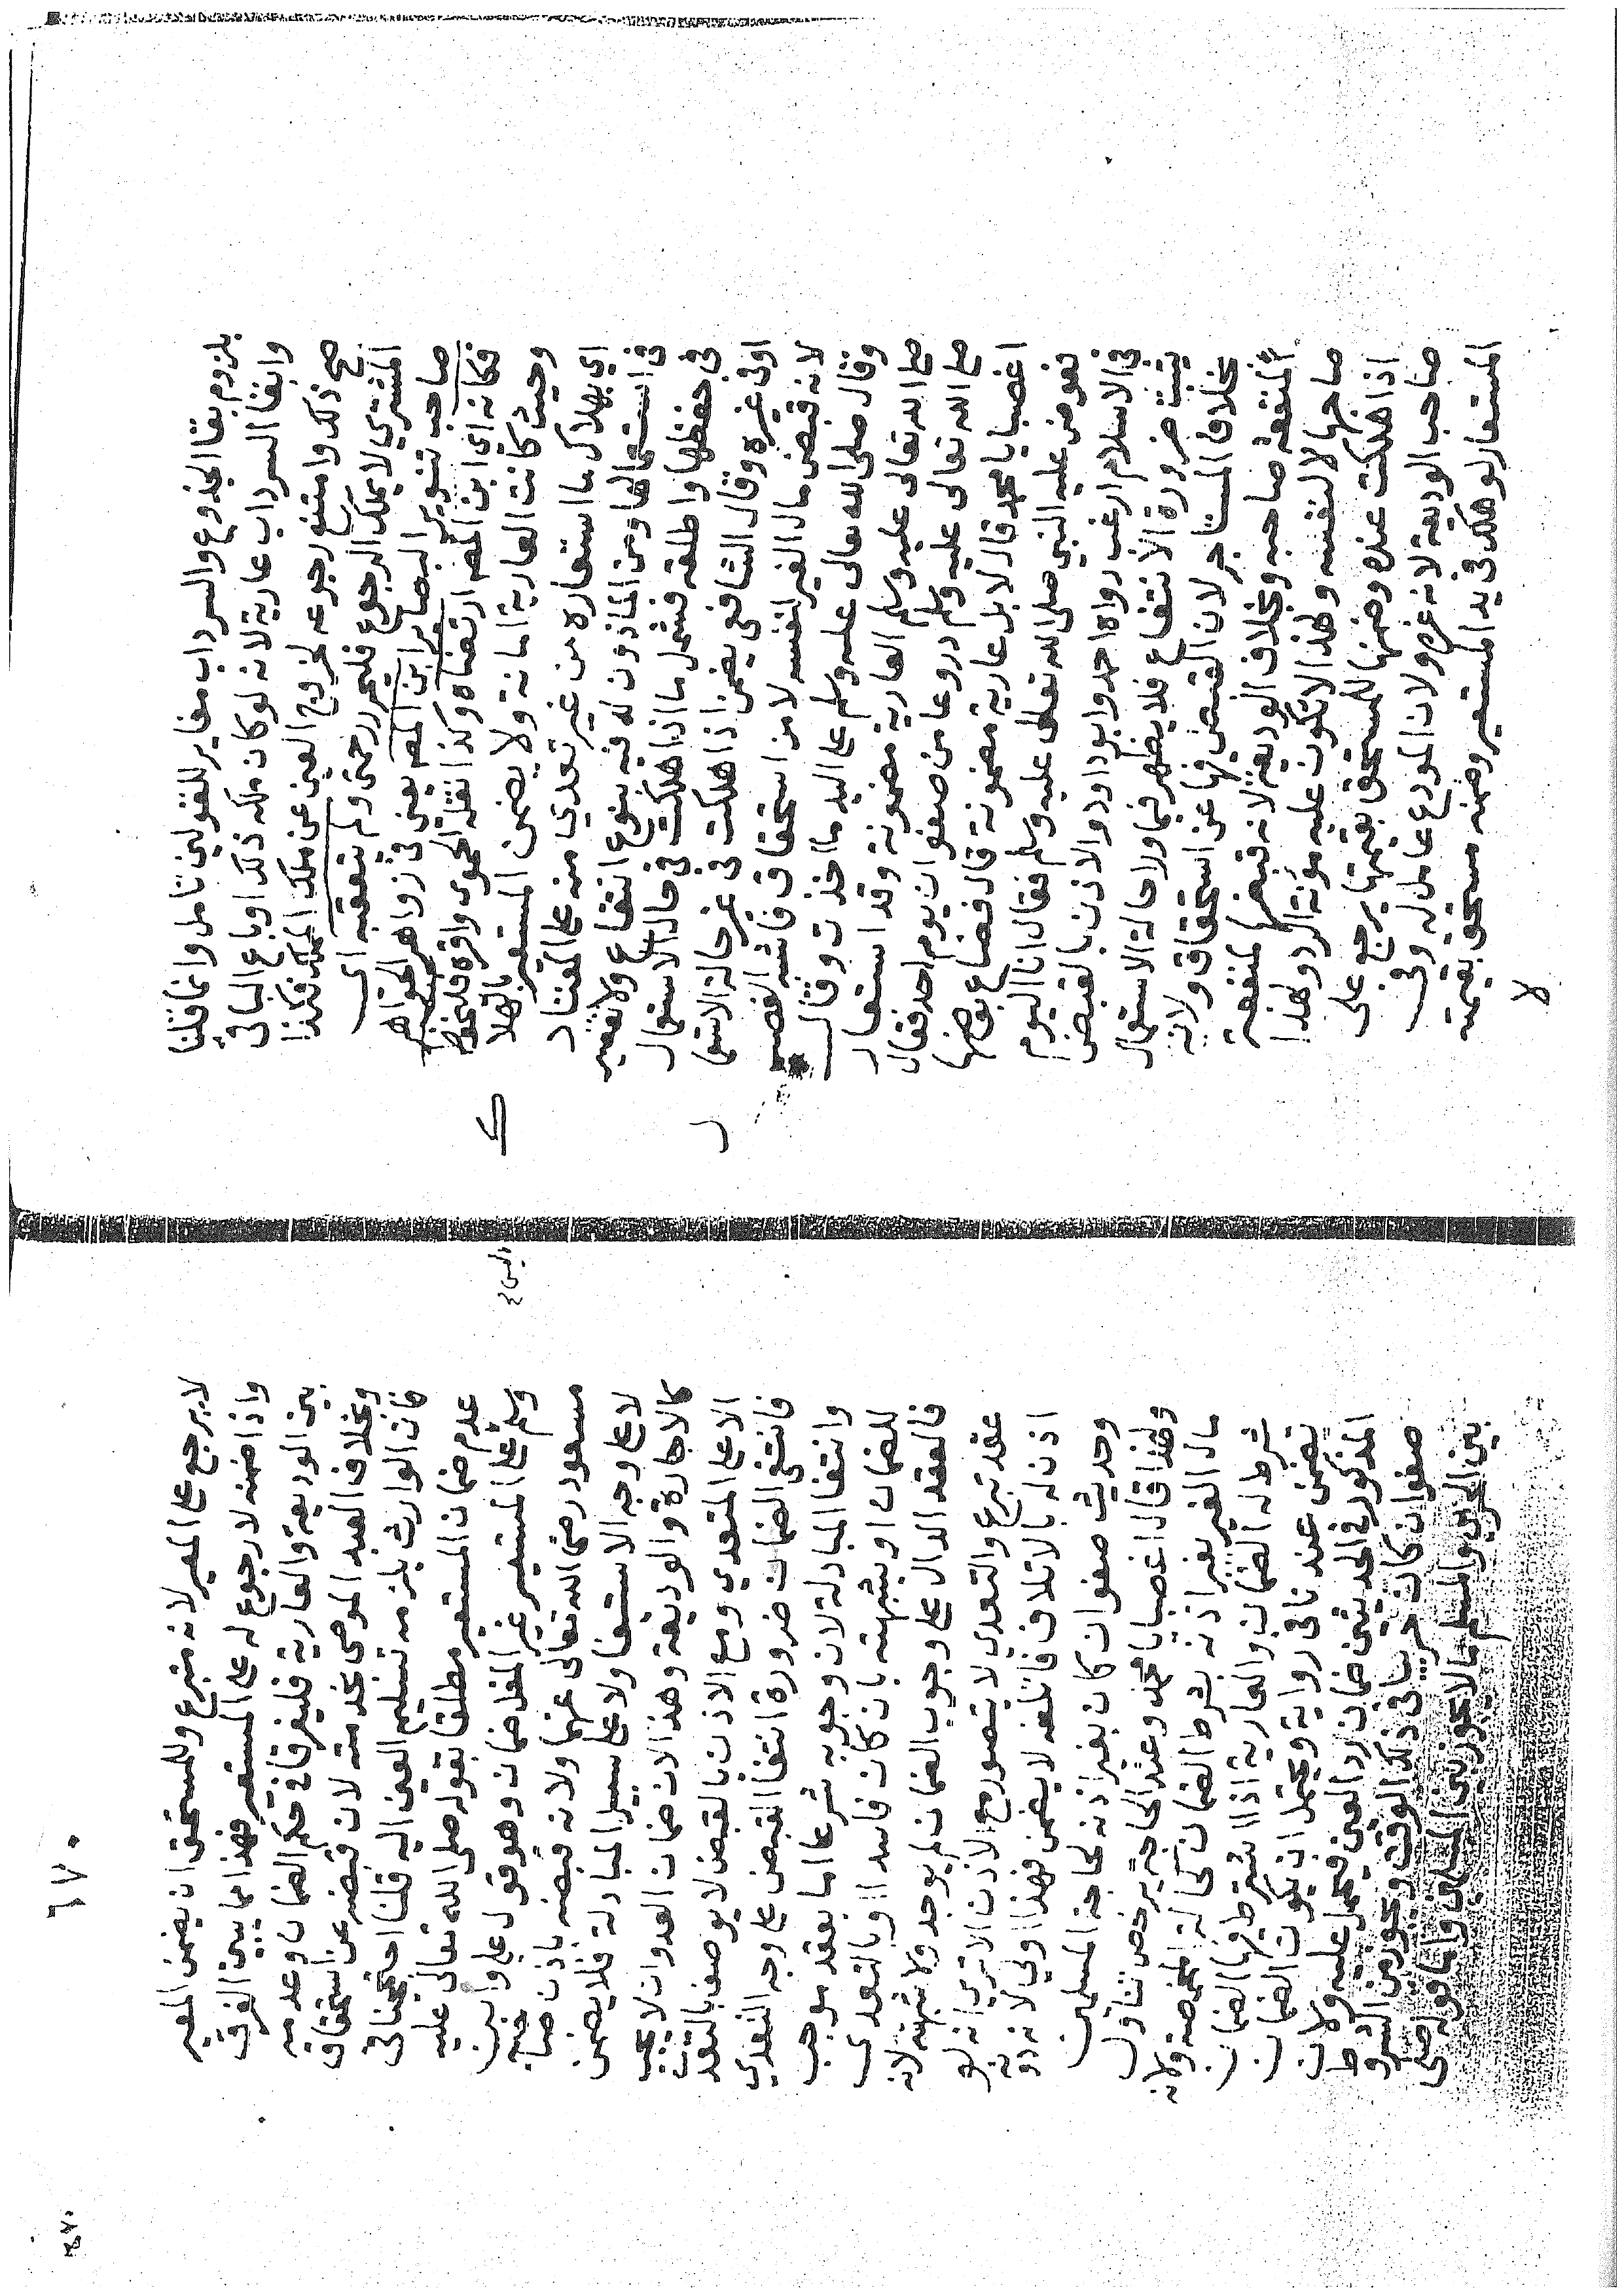 بلزوم بقا الجذوع والسرداب مغاير للمنقولين تامل وانما قلنا
وابقا السرداب عارية لانه لو كان ملكه ذلك او باع الباقي
صح ذلك وامتنع رجوعه لخروج العين عن ملك المملك فكذا
المشتري لا يملك الرجوع فليحرر رحمتي ولم يتعقبه اي
صاحب تنوير البصاير ابن المص يعني في زواهر الجواهر
فكانه اي ابن المص ارتضاه وكذا نقله الحموي واقره فليحفظ
وحيث كانت العارية امانة ولا يضمن المستعير بالهلا
اي بهلاك ما استعاره من غير تعدي منه على المعتاد
في استعمالها ومن الماذون له فيه بنوع انتفاع ولا تقصير
في حفظها واطلقه فشمل ما اذا هلكت في حال الاستعمال
او في غيره وقال الشافعي يضمن اذا هلكت في غير حالة الاستعما
لانه قبض مال الغير لنفسه لا من استحقاق فاشبه الغصب
وقال صلى الله تعالى عليه وسلم على اليد ما اخذت وقال
صلى الله تعالى عليه وسلم العارية مضمونة وقد استعار
صلى الله تعالى عليه وسلم دروعا من صفوان يوم احد فقال
اغصبا يا محمد قال لا بل عارية مضمونة قال فضاع بعضها
فعرض عليه النبي صلى الله تعالى عليه وسلم فقال انا اليوم
في الاسلام ارغب رواه احمد وابو داود والاذن بالقبض
يثبت ضرورة الانتفاع فلا يظهر فيما ولا حالة الاستعمال
بخلاف المستاجر لان القبض فيها عن استحقاق ولانه
لمنفعة صاحبه وبخلاف الوديعة لانه قبضها لمنفعة
صاحبها لا لنفسه ولهذا لا تكون عليه مؤنة الرد ولهذا
اذا هلكت عنده وضمنها للمستحق بقيمتها يرجع على
صاحب الوديعة لانه غره ولان المودع عامل له وفي
المستعار لو هلك في يد المستعير وضمنه مستحق بقيمته
لا
٦٧٠
لا يرجع على المعير لانه متبرع وللمستحق ان يضمن المعير
واذا ضمنه لا رجوع له على المستعير فهذا مما يبين الفرق
بين الوديعة والعارية فليفرقا في حكم الضمان وعدمه
وبخلاف العبد الموصى بخدمته لان قبضه عن استحقاق
فان الوارث يلزمه تسليم العين اليه قلنا احتجنا في
عدم ضمان المستعير مطلقا بقوله صلى الله تعالى عليه
وسلم على المستعير غير المغل ضمان وهو قول علي وابن
مسعود رضي الله تعالى عنهما ولانه قبضه باذن صاحبه
لا على وجه الاستيفا ولا على سبيل المبادلة فلا يضمن
كالاجارة والوديعة وهذا لان ضمان العدوان لا يجب
الا على المتعدي ومع الاذن بالقبض لا يوصف بالتعد
فانتفى الضمان ضرورة انتفا القبض على وجه التعدي
وانتفا المبادلة لان وجوبه شرعا اما بعقد موجب
للضمان او بشبهته بان كان فاسدا او بالتعدي
فالعقد الدال على وجوب الضمان لم يوجد ولا شبهته لانه
عقد تبرع والتعدي لا يتصور مع الاذن الا ترى انه لو
اذن له بالاتلاف فاتلفه لا يضمن فهذا اولى لانه دونه
وحديث صفوان كان بغير اذنه لحاجة المسلمين
ولهذا قال اغصبا يا محمد وعند الحاجة يرخص تناول
مال الغير بغير اذنه بشرط الضمان كحالة المخمصة ولانه
شرط له الضمان والعارية اذا اشترط فيها الضمان
تضمن عندنا في رواية ويحتمل ان يكون الضمان
المذكور في الحديثين ضمان رد العين فيحمل عليه ولان
صفوان كان حربيا في ذلك الوقت ويجوز من الشروط
بين الحربي والمسلم ما لا يجوز بين المسلمين واما قوله صلى